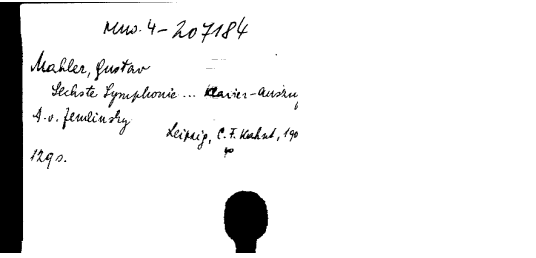 Mus. 4-207184
Mahler, Gustav
Sechste Symphonie ... Klavier-Auszu
A. v. Zemlinsky
Leipzig, C. F. Kahnt, 190
129 s.